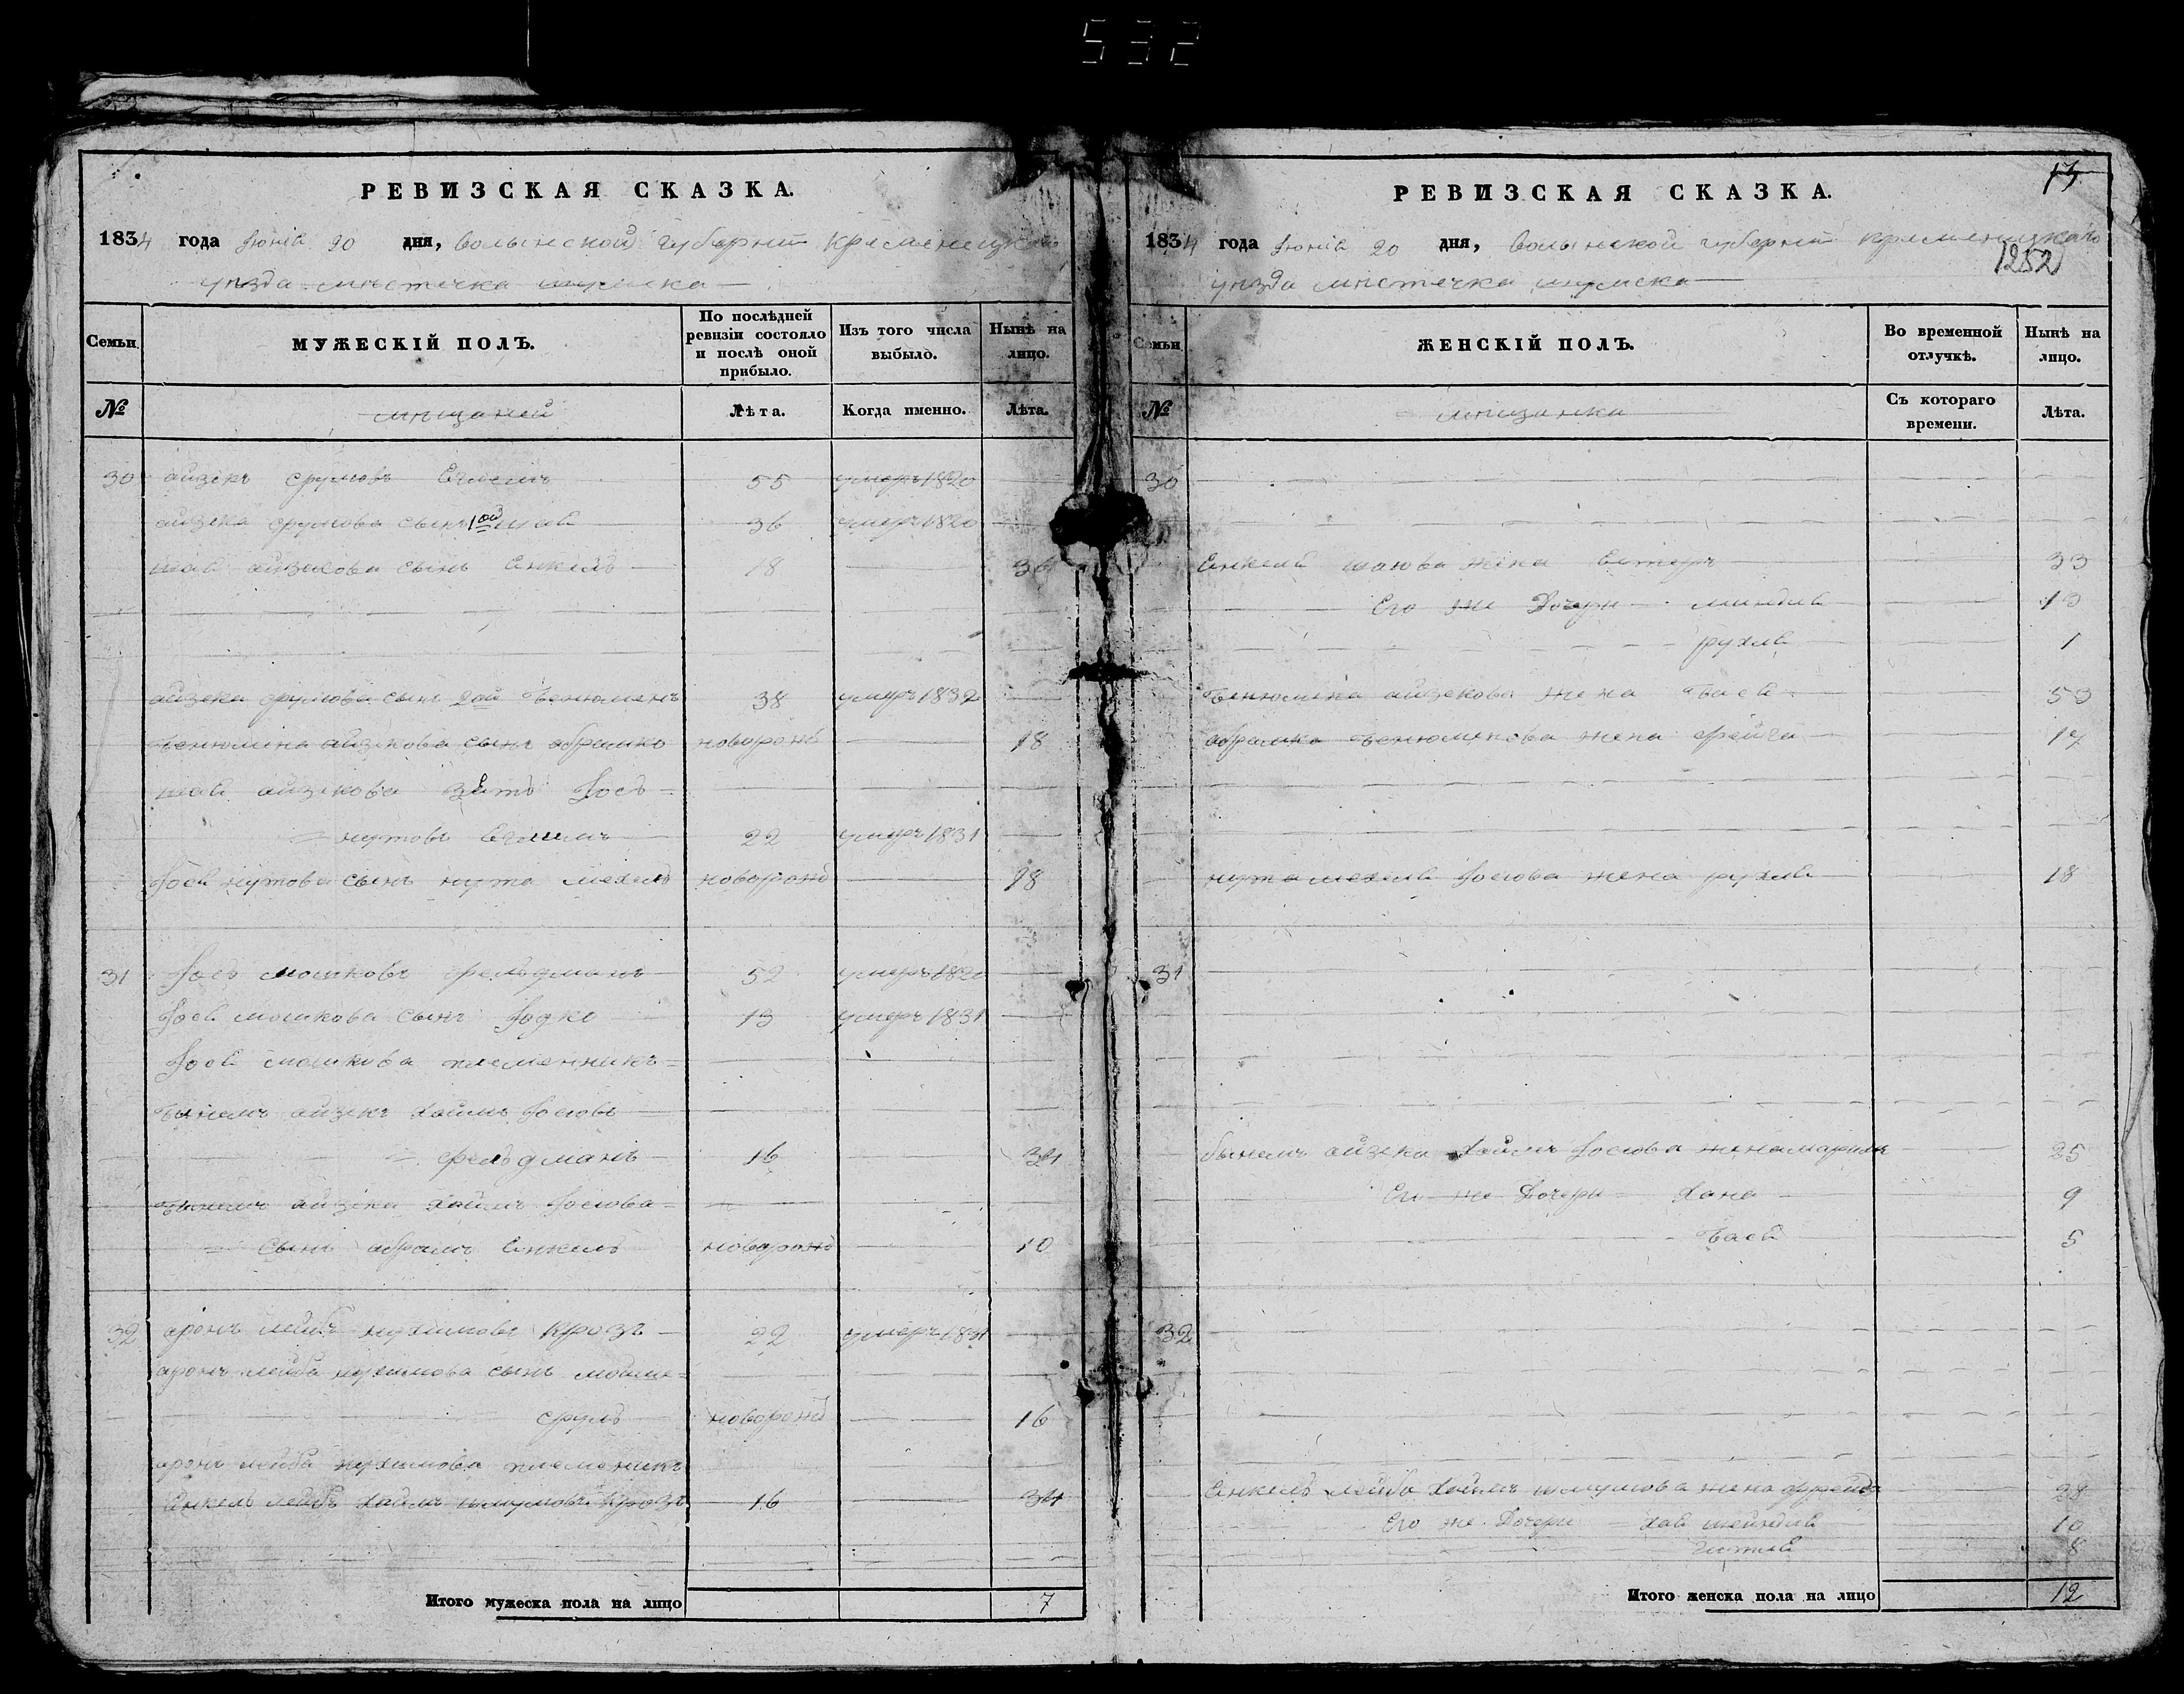 532
РЕВИЗСКАЯ СКАЗКА.
1834 года Июнія 20 дня, волынской губерніи Кременецкаго
уезда местечка шумска
Семьи.
МУЖЕСКІЙ ПОЛЪ.
По послѣдней ревизіи состояло и послѣ оной прибыло.
Изъ того числа выбыло.
Нынѣ на лицо.
№
мещаней
Лѣта.
Когда именно.
Лѣта.
30 айзикъ срулювъ 55 умеръ 1820
айзека срулюва сынъ 1ой шаѣ 36 умеръ 1820
шаѣ айзикова сынъ Енкель 18 34
айзека срулюва сынъ 2ой бенюменъ 38 умеръ 1832
бенюмина айзикова сынъ абрамко новорожд 18
шаѣ айзикова зять Іось
нутовъ 22 умеръ 1831
Іосѣ нутова сынъ нута мехель новорожд 18
31 Іось мошковъ фельдманъ 52 умеръ 1820
Іосѣ мошкова сынъ Іодко 13 умеръ 1831
Іосѣ мошкова племенникъ
бынемъ айзикъ хаимъ Іосювъ
фельдманъ 16 34
бынемъ айзика хаимъ Іосюва
сынъ абрамъ Енкель новорожд 10
32 аронъ лейбъ нухимовъ Крозъ 22 умеръ 1831
аронъ лейба нухимова сынъ мовша
сруль новорожд 16
аронъ лейба нухимова племеникъ
Енкель лейбъ хаимъ шмулювъ Крозъ 16 34
Итого мужеска пола на лицо 7
13
РЕВИЗСКАЯ СКАЗКА.
1834 года Июнія 20 дня, волынской губерніи Кременецкаго
1252
уезда местечка шумска
Семьи
ЖЕНСКІЙ ПОЛЪ.
Во временной отлучкѣ.
Нынѣ на лицо.
№
мещанки
Съ котораго времени.
Лѣта.
30
Енкеля шаюва жена Естеръ 33
Его же Дочери миндля 13
рухля 1
бенюмина айзекова жена басѣ 53
абрамка бенюминова жена фейга 17
нута мехеля Іосюва жена рухля 18
31
бынемъ айзика хаимъ Іосюва жена марьямъ 25
Его же Дочери хана 9
басѣ 5
32
Енкель лейба хаимъ шмулюва жена фрейда 28
Его же Дочери хаѣ шейндля 10
гитлѣ 8
Итого женска пола на лицо 12